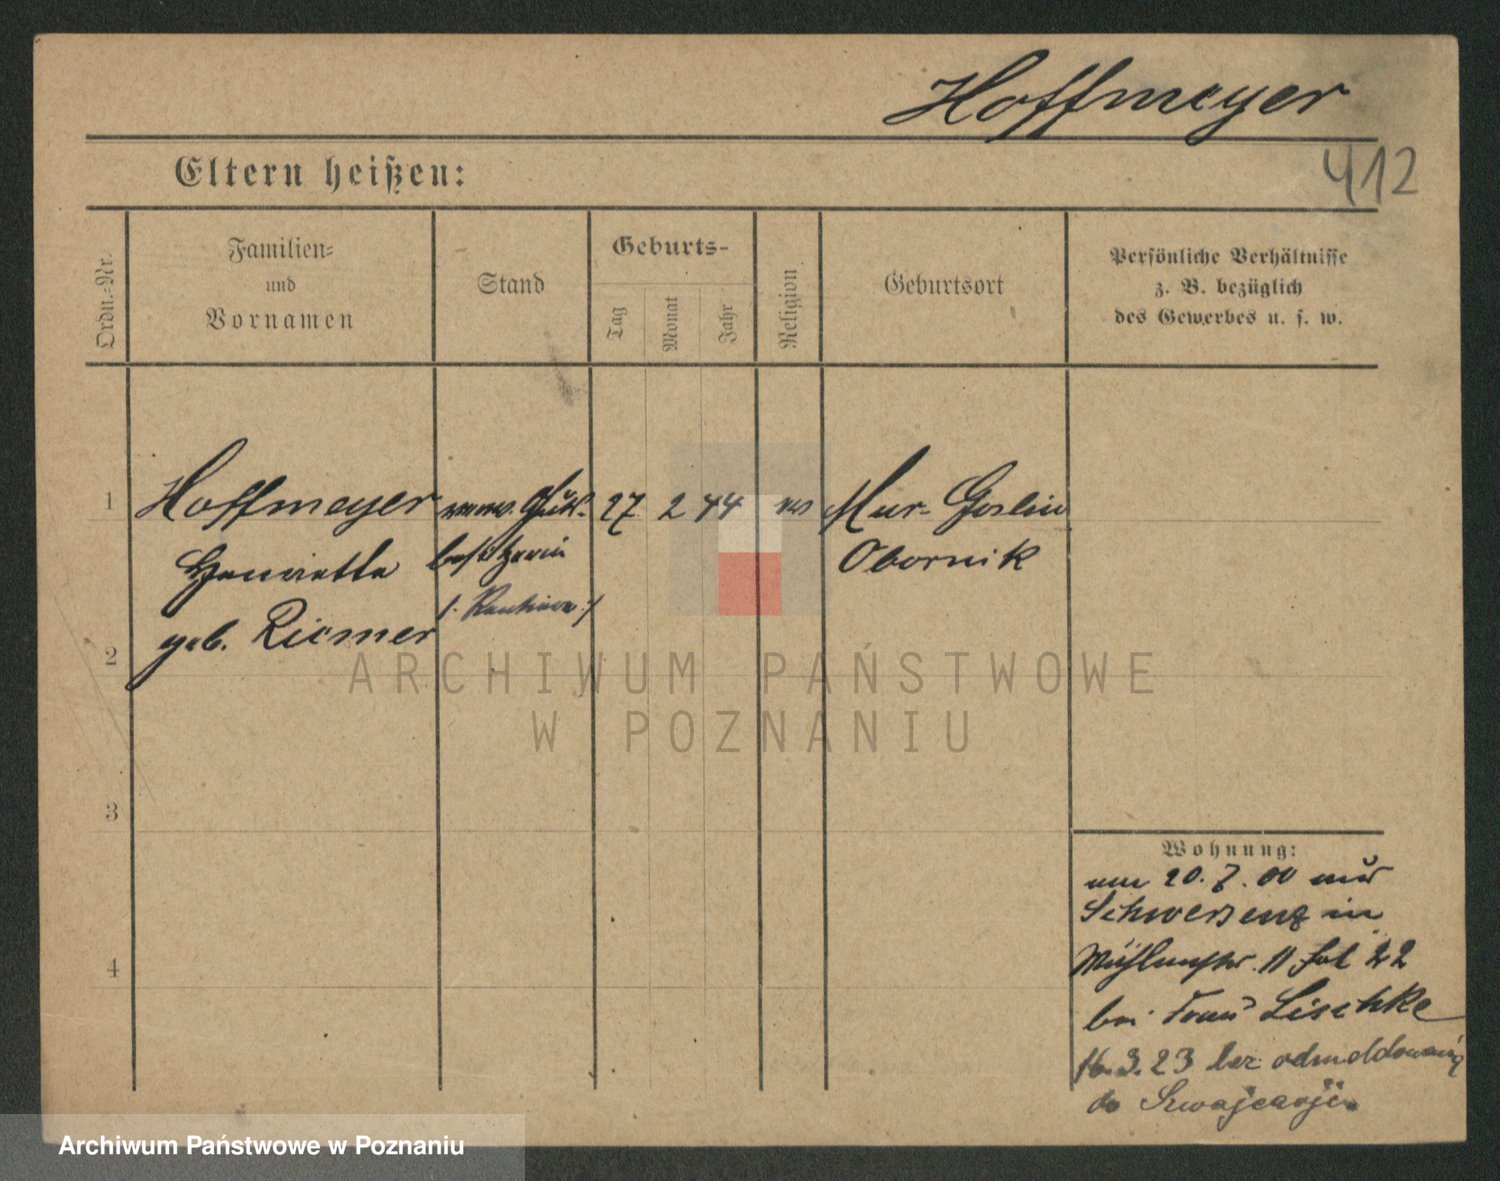 Hoffmeyer
412
Eltern heißen:
Ordn.-Nr.
Familien-
und
Vornamen
Stand
Geburts-
Tag
Monat
Jahr
Religion
Geburtsort
Persönliche Verhältnisse
z. B. bezüglich
des Gewerbes u. s. w.
1
Hoffmeyer
Henriette
geb. Riemer
besitzerin
27 2 44
Mur. Goslin
Obornik
2
3
4
Wohnung:
20. 7. 00
Schwersenz in
Mühlenstr. 11 22
bei Frau Lischke
16.3.23 bez odmeldowania
do Szwajcarji
ARCHIWUM PAŃSTWOWE
W POZNANIU
Archiwum Państwowe w Poznaniu